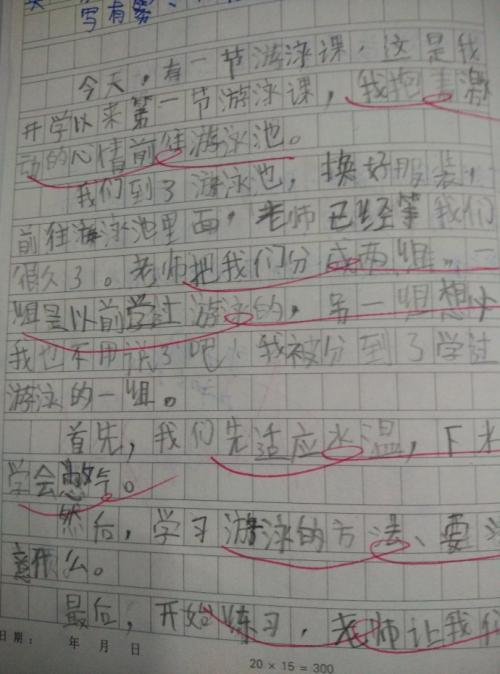 写有雾、
今天，有一节游泳课，这是我
开学以来第一节游泳课，我抱着激
动的心情前往游泳池。
我们到了游泳池，换好服装，
前往游泳池里面，老师已经等我们
很久了。老师把我们分成两组。一
组是以前学过游泳的，另一组想必
我也不用说了吧，我被分到了学过
游泳的一组。
首先，我们先适应水温，下水
学会憋气。
然后，学习游泳的方法、要注
意什么。
最后，开始练习，老师让我们
日期： 年 月 日
20 × 15 = 300